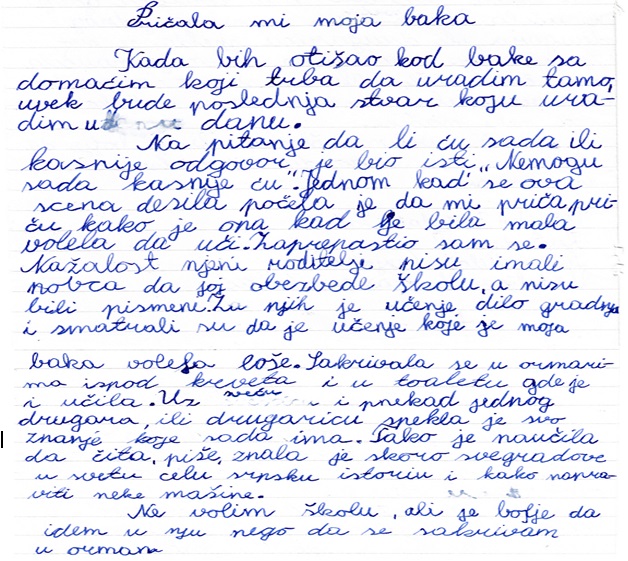 Pričala mi moja baka
Kada bih otišao kod bake sa
domaćim koji trba da uradim tamo,
uvek bude poslednja stvar koju ura-
dim u danu.
Na pitanje da li ću sada ili
kasnije odgovor je bio isti „Nemogu
sada kasnije ću“. Jednom kad se ova
scena desila počela je da mi priča pri-
ču kako je ona kad je bila mala
volela da uči. Zaprepastio sam se.
Nažalost njeni roditelji nisu imali
novca da joj obezbede školu, a nisu
bili pismeni. Za njih je učenje bilo gradnja
i smatrali su da je učenje koje je moja
baka volela loše. Sakrivala se u ormari-
ma ispod kreveta i u toaletu gde je
i učila. Uz sveću i pnekad jednog
drugara, ili drugaricu spekla je svo
znanje koje sada ima. Tako je naučila
da čita, piše, znala je skoro sve gradove
u svetu celu srpsku istoriju i kako napra-
viti neke mašine.
Ne volim školu, ali je bolje da
idem u nju nego da se sakrivam
u orman